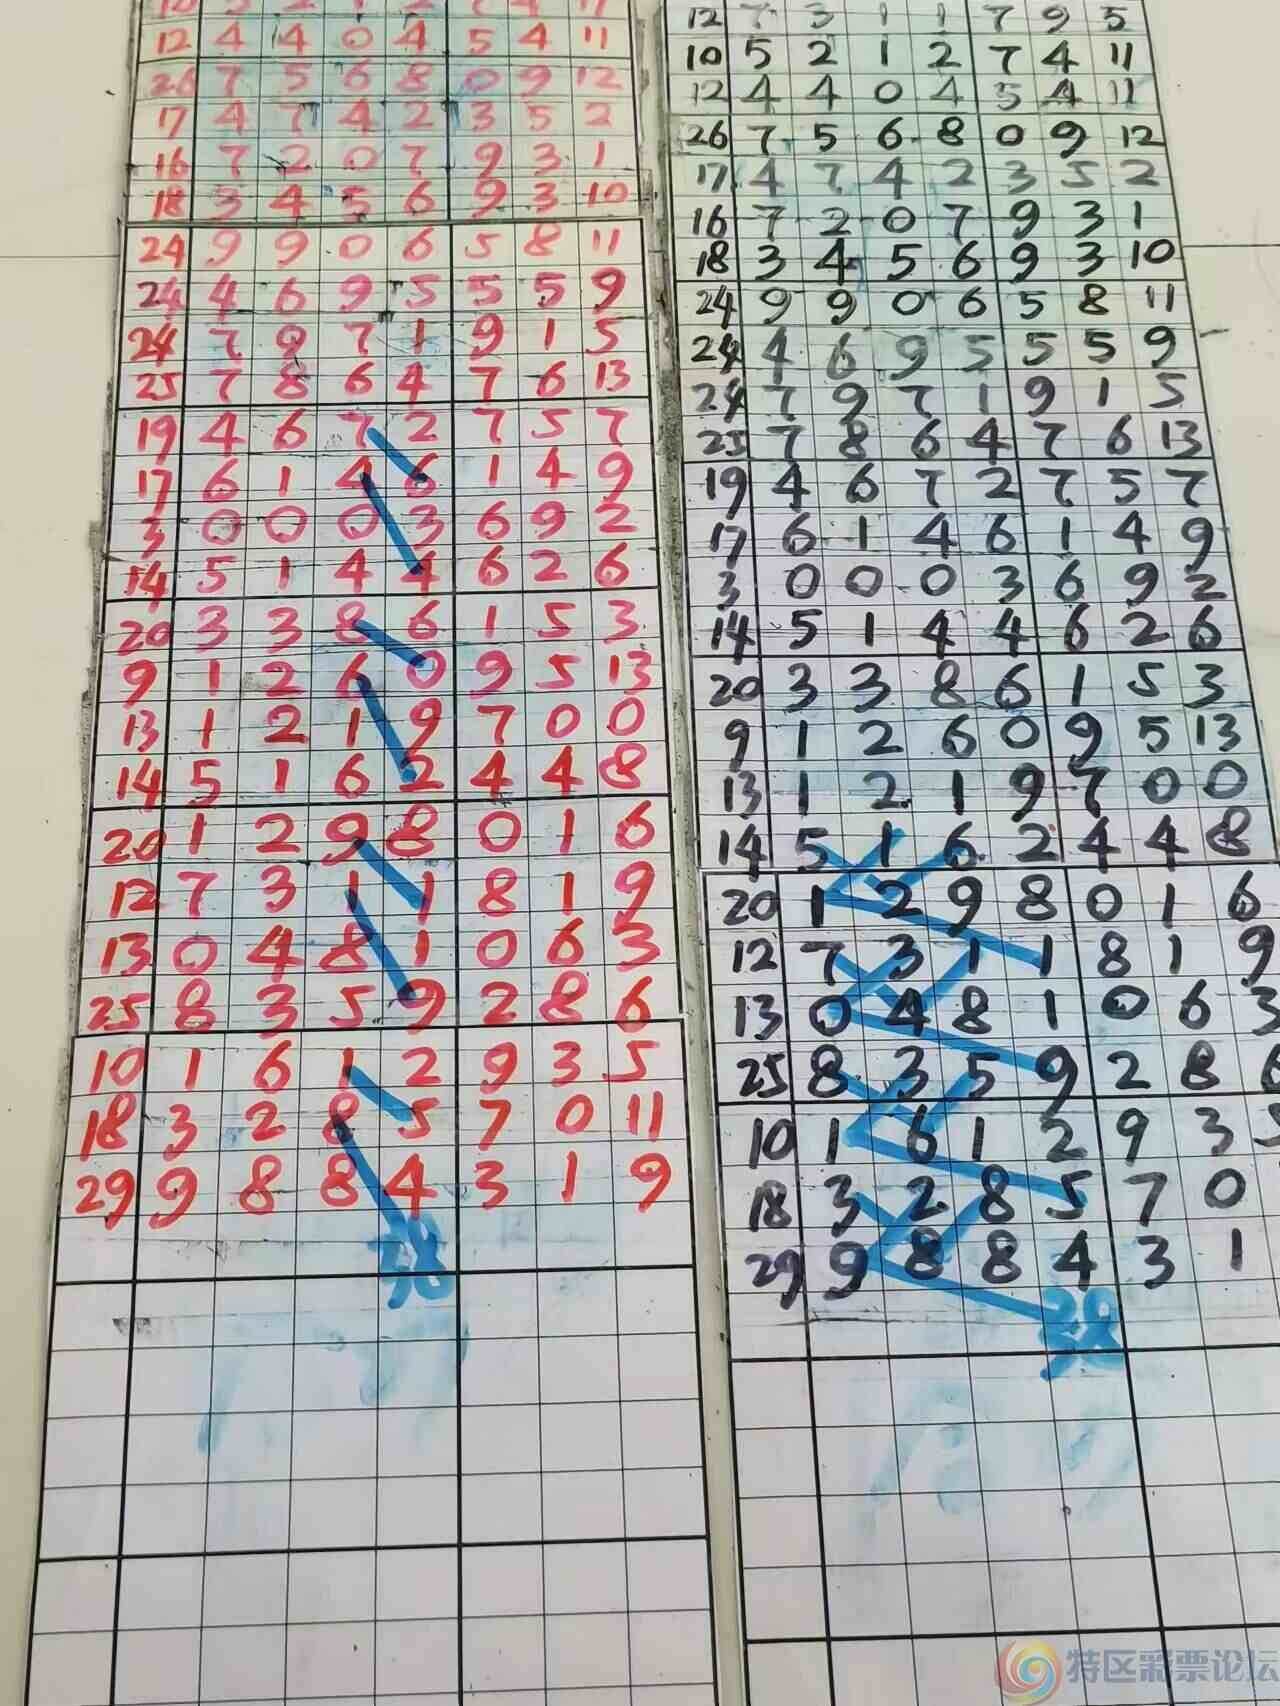 12 4 4 0 4 5 4 11
26 7 5 6 8 0 9 12
17 4 7 4 2 3 5 2
16 7 2 0 7 9 3 1
18 3 4 5 6 9 3 10
24 9 9 0 6 5 8 11
24 4 6 9 5 5 5 9
24 7 9 7 1 9 1 5
25 7 8 6 4 7 6 13
19 4 6 7 2 7 5 7
17 6 1 4 6 1 4 9
3 0 0 0 3 6 9 2
14 5 1 4 4 6 2 6
20 3 3 8 6 1 5 3
9 1 2 6 0 9 5 13
13 1 2 1 9 7 0 0
14 5 1 6 2 4 4 8
20 1 2 9 8 0 1 6
12 7 3 1 1 8 1 9
13 0 4 8 1 0 6 3
25 8 3 5 9 2 8 6
10 1 6 1 2 9 3 5
18 3 2 8 5 7 0 11
29 9 8 8 4 3 1 9
38
12 7 3 1 1 7 9 5
10 5 2 1 2 7 4 11
12 4 4 0 4 5 4 11
26 7 5 6 8 0 9 12
17 4 7 4 2 3 5 2
16 7 2 0 7 9 3 1
18 3 4 5 6 9 3 10
24 9 9 0 6 5 8 11
24 4 6 9 5 5 5 9
24 7 9 7 1 9 1 5
25 7 8 6 4 7 6 13
19 4 6 7 2 7 5 7
17 6 1 4 6 1 4 9
3 0 0 0 3 6 9 2
14 5 1 4 4 6 2 6
20 3 3 8 6 1 5 3
9 1 2 6 0 9 5 13
13 1 2 1 9 7 0 0
14 5 1 6 2 4 4 8
20 1 2 9 8 0 1 6
12 7 3 1 1 8 1 9
13 0 4 8 1 0 6 3
25 8 3 5 9 2 8 6
10 1 6 1 2 9 3 5
18 3 2 8 5 7 0
29 9 8 8 4 3 1
38
特区彩票论坛